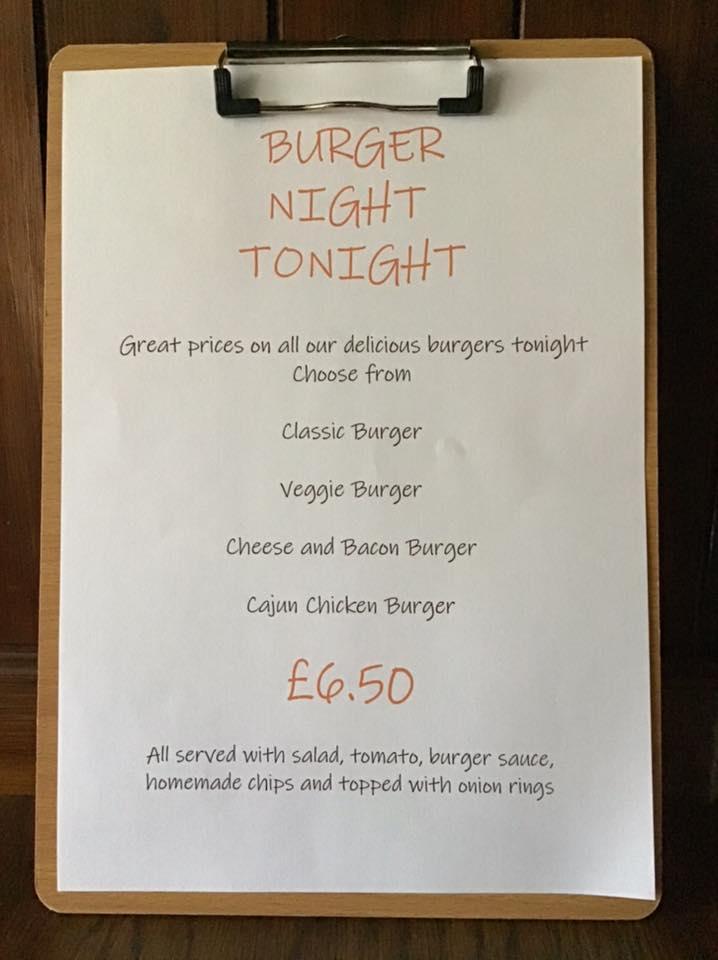 BURGER
NIGHT
TONIGHT
Great prices on all our delicious burgers tonight
Choose from
Classic Burger
Veggie Burger
Cheese and Bacon Burger
Cajun Chicken Burger
£6.50
All served with salad, tomato, burger sauce,
homemade chips and topped with onion rings